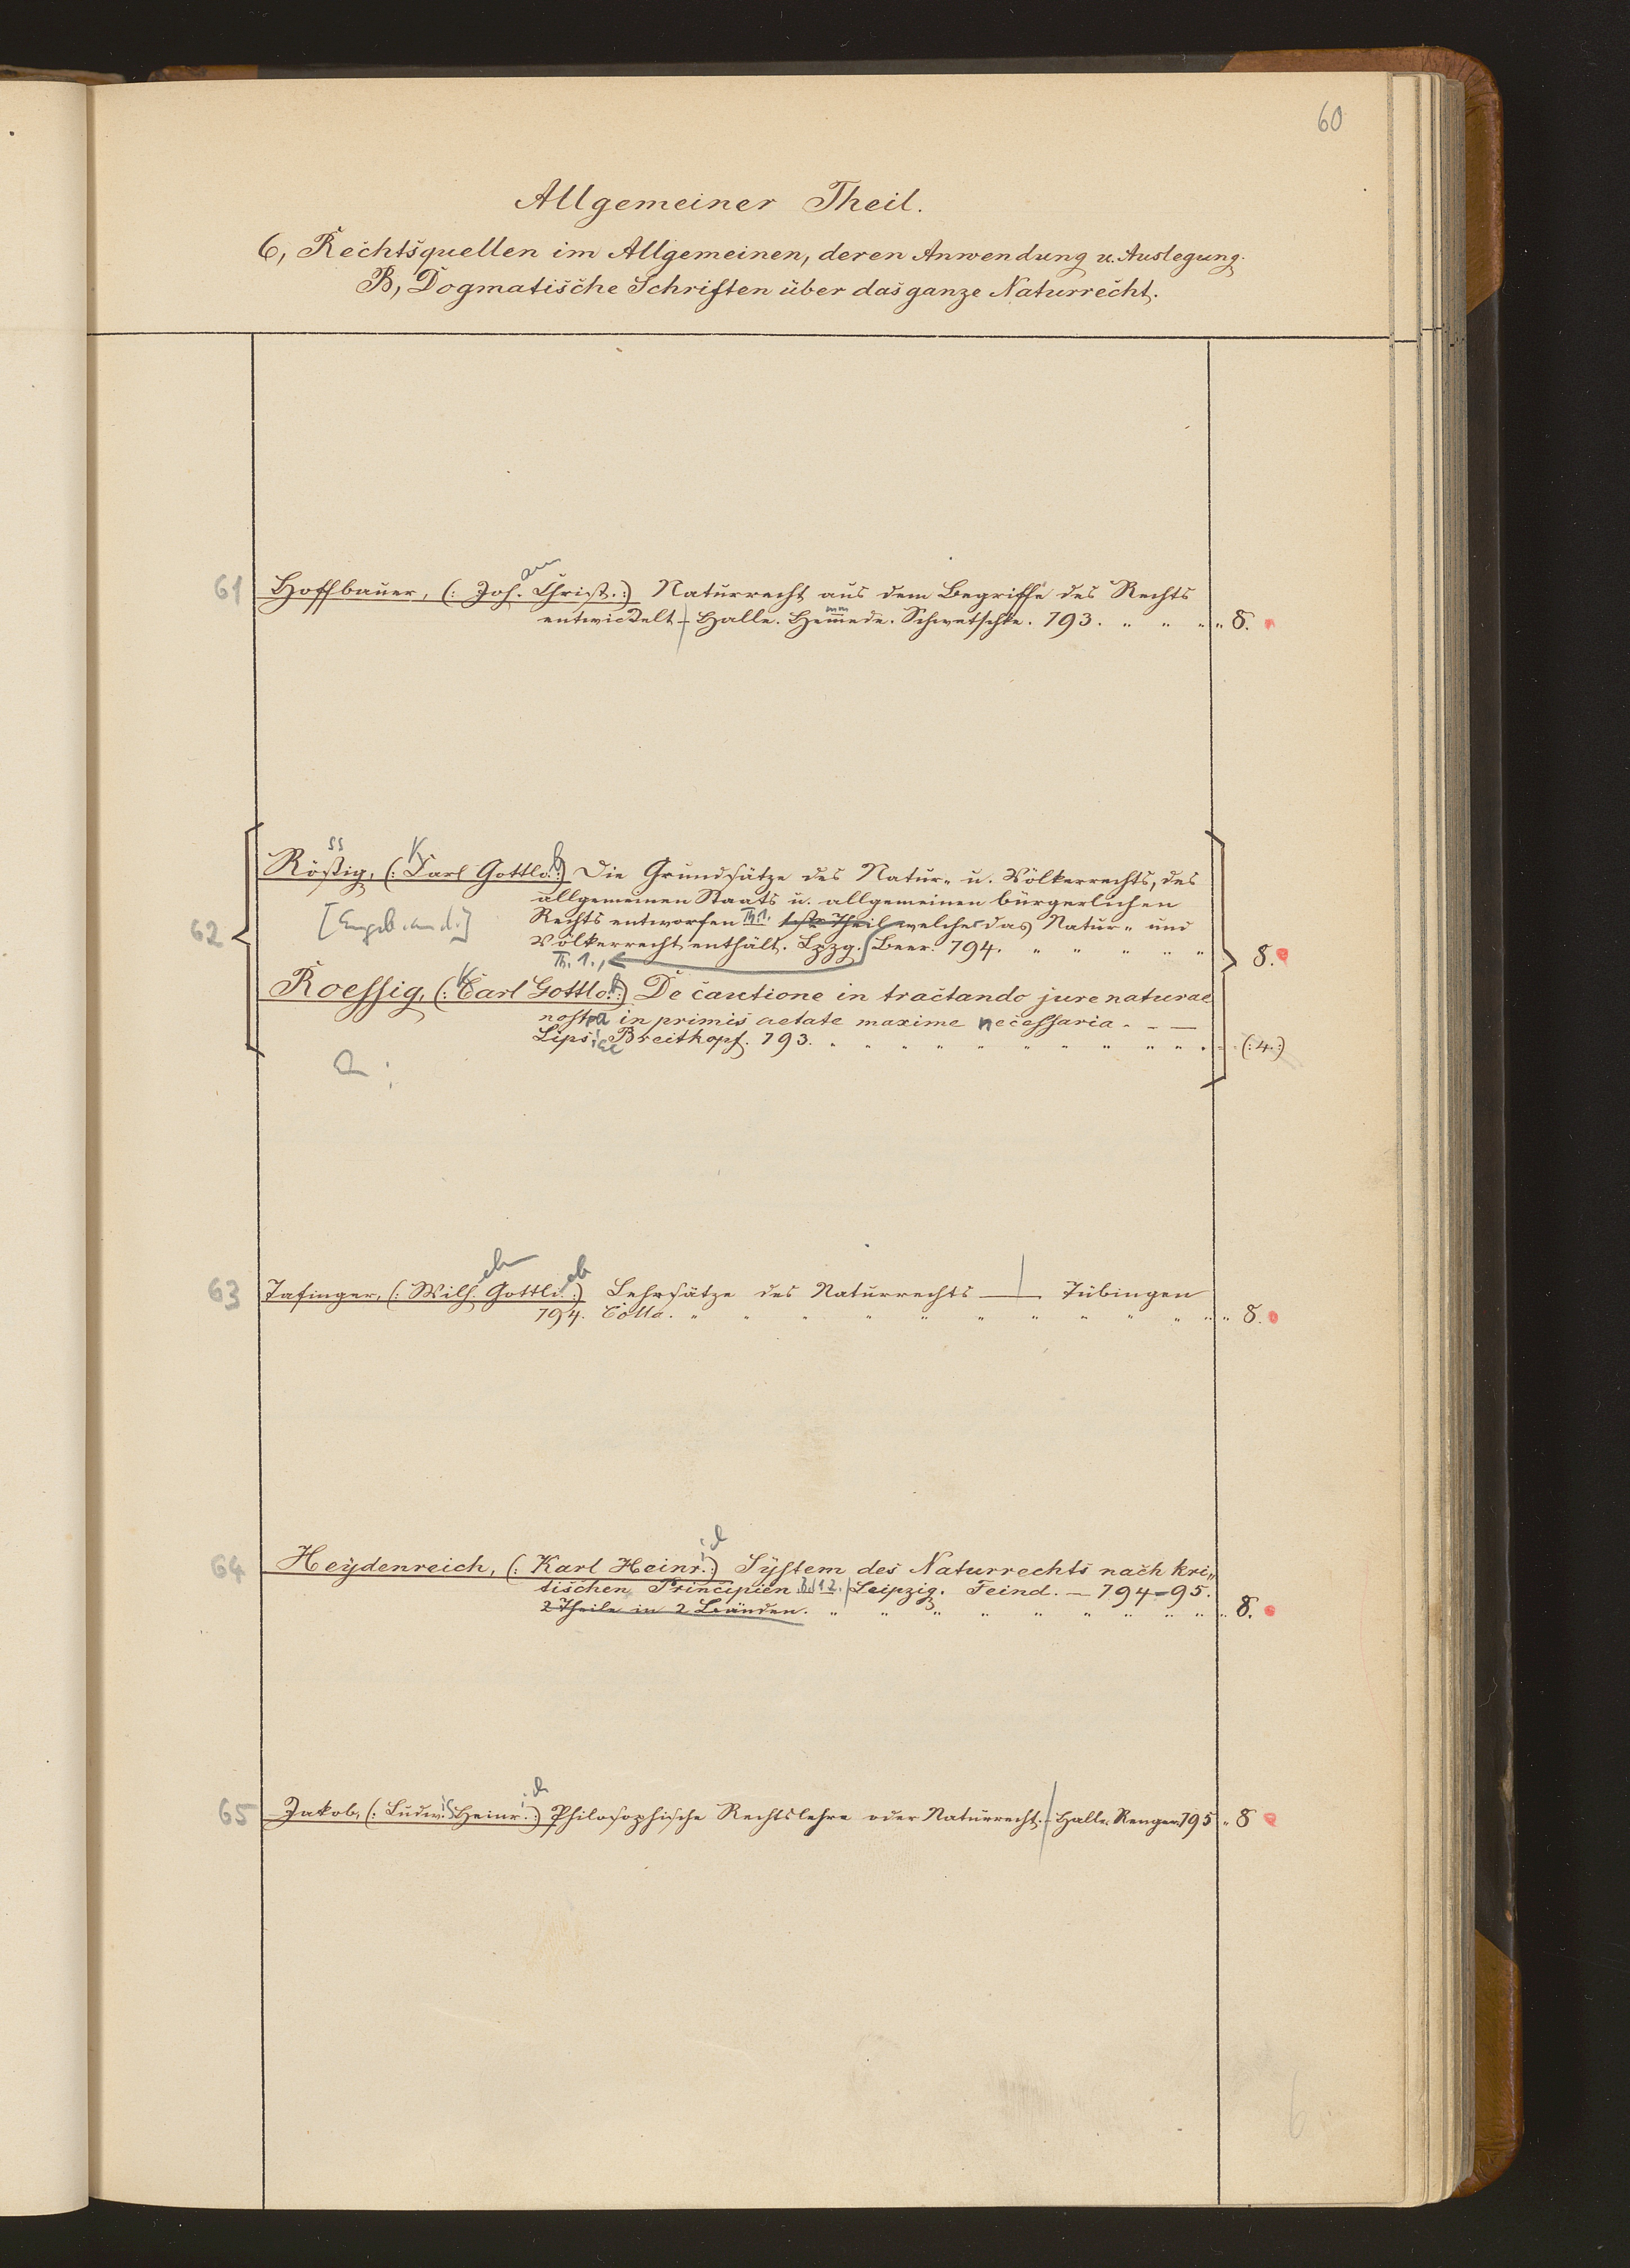 60
Allgemeiner Theil.
6, Rechtsquellen im Allgemeinen, deren Anwendung u. Auslegung.
B, Dogmatische Schriften über das ganze Naturrecht.
61 Hoffbauer, (: Joh. Christ. :) Naturrecht aus dem Begriffe des Rechts
entwickelt - Halle. Hemmede. Schwetschke. 793. " " " " 8.
ss K b
Rößig, (: Carl Gottlo. :) Die Grundsätze des Natur- u. Völkerrechts, des
allgemeinen Staats u. allgemeinen bürgerlichen
62 Rechts entworfen Th. 1. welches das Natur- und
Völkerrecht enthält. Lpzg. Beer. 794. " " " " " 8.
Th. 1.,
Roessig, (: Carl Gottlob :) De cautione in tractando jure naturae
nostra in primis aetate maxime necessaria. - —
Lipsiae Breitkopf. 793. " " " " " " " (: 4. :)
63 Tafinger, (: Wilh. Gottli. :) Lehrsätze des Naturrechts — Tübingen
794. Cotta. " " " " " " " " " " 8.
64 Heydenreich, (: Karl Heinr. :) System des Naturrechts nach kri„
tischen Principien Bd 1 2. Leipzig. Feind. — 794-95.
2 Theile in 2 Bänden. " " " " " " " " " 8.
65 Jakob, (: Ludw. Heinr. :) Philosophische Rechtslehre oder Naturrecht. - Halle. Renger. 795 " 8